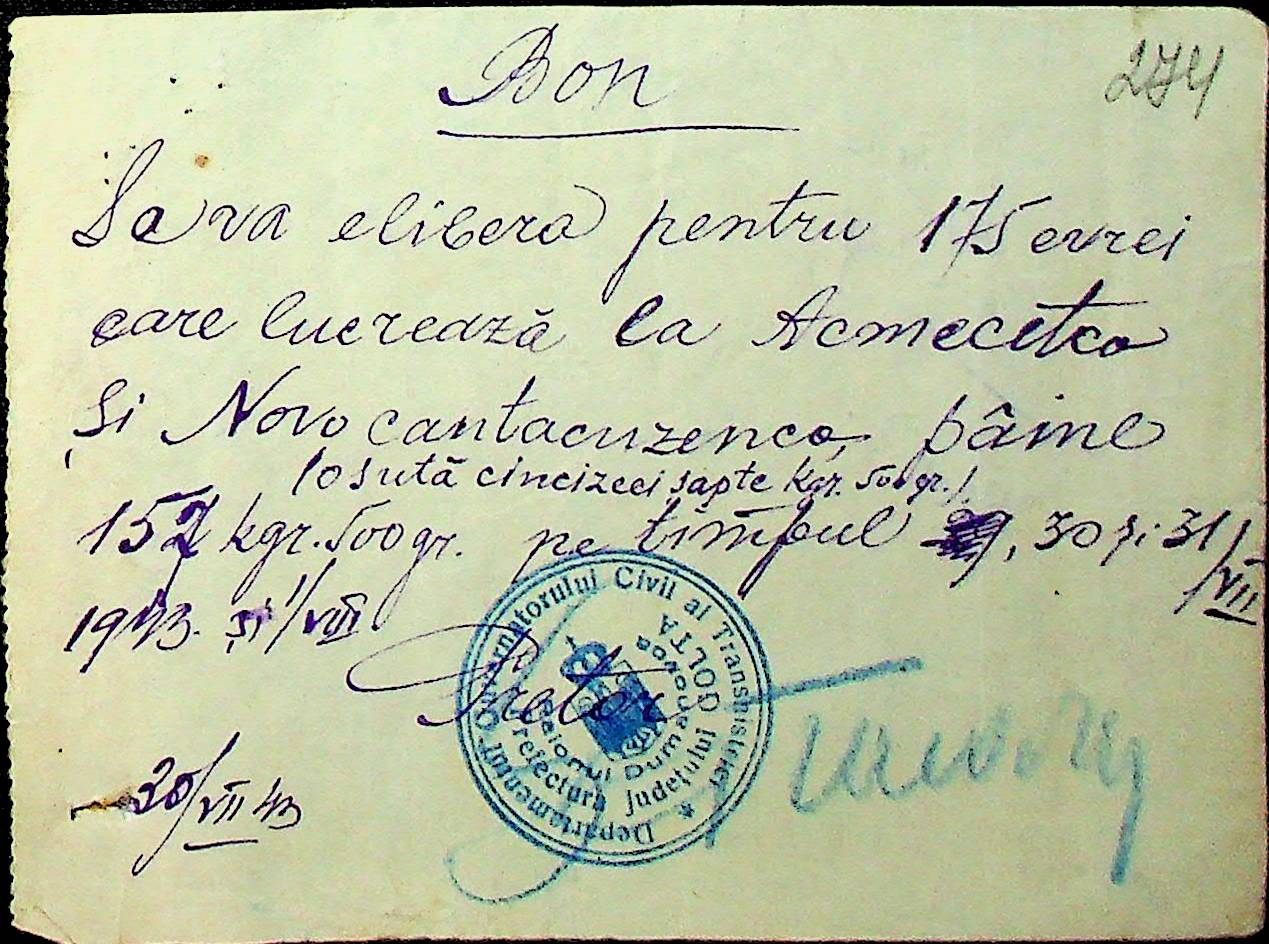 Bon
274
Sa va elibera pentru 175 evrei
care lucrează la Acmecetca
și Novo cantacuzenco, pâine
(o sută cincizeci șapte kgr. 500 gr.)
157 kgr. 500 gr. pe timpul , 30 și 31/VII
1943. și 1/VIII
Pretor
30/VII 43
Departamentul Guvernatorului Civil al Transnistriei
Prefectura Județului GOLTA
Raionul Dumanovca